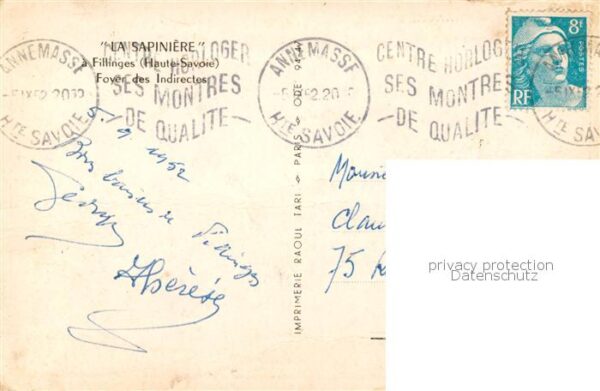 "LA SAPINIÈRE"
à Fillinges (Haute-Savoie)
Foyer des Indirectes
ANNEMASSE
-5IX52.2032
Hte SAVOIE
CENTRE HORLOGER
SES MONTRES
-DE QUALITE-
ANNEMASSE
Hte SAVOIE
CENTRE HORLOGER
SES MONTRES
-DE QUALITE-
8F
POSTES
RF
Hte SAVOIE
5.9 1952
Bons baisers de Fillinges
Thérèse
IMPRIMERIE RAOUL TARI PARIS ODE
75
privacy protection
Datenschutz